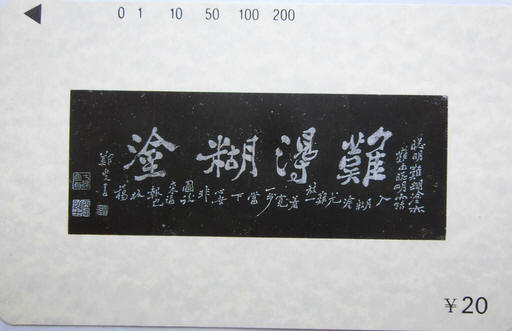 0 1 10 50 100 200
難得糊塗
聰明難糊塗亦
難由聰明而轉
入糊塗
難放一著退一步當下心安非圖後來福報也
鄭燮書
¥20